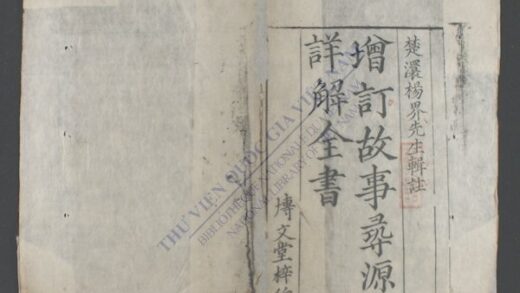 楚澴楊界先生輯註
增訂故事尋源
詳解全書
愽文堂梓
THƯ VIỆN QUỐC GIA VIỆT NAM
BIBLIOTHEQUE NATIONALE DU
NATIONAL LIBRARY OF